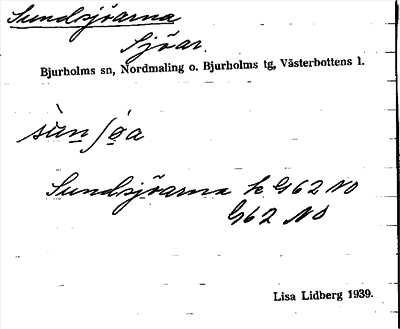 Sundsjöarna
Sjöar.
Bjurholms sn, Nordmaling o. Bjurholms tg, Västerbottens l.
sùnʃø̀a
Sundsjöarna k G62 NO
G62 NO
Lisa Lidberg 1939.